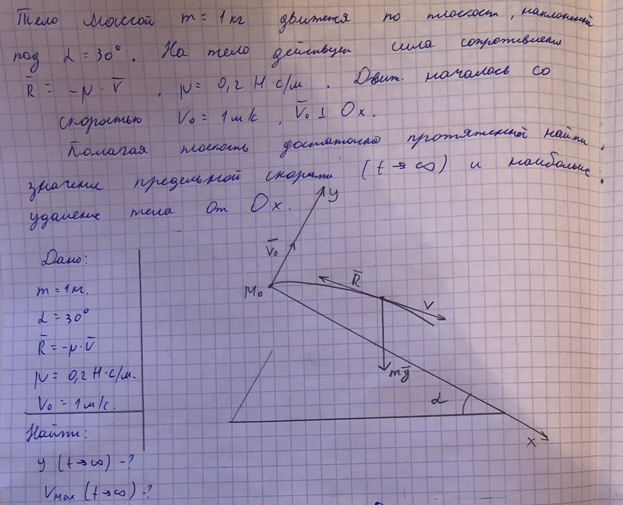 Тело массой m = 1 кг движется по плоскости, наклонённой
под α = 30°. На тело действует сила сопротивления
R̄ = -μ·V̄, μ = 0,2 Н·с/м. Движ. началось со
скоростью V₀ = 1 м/с, V̄₀ ⊥ Ox.
Полагая плоскость достаточно протяженной найти,
значение предельной скорости (t→∞) и наибольшее
удаление тела от Ox.
y
V̄₀
M₀
R̄
V
mḡ
α
x
Дано:
m = 1 кг.
α = 30°
R̄ = -μ·V̄
μ = 0,2 Н·с/м.
V₀ = 1 м/с.
Найти:
y (t→∞) -?
Vmax (t→∞) -?